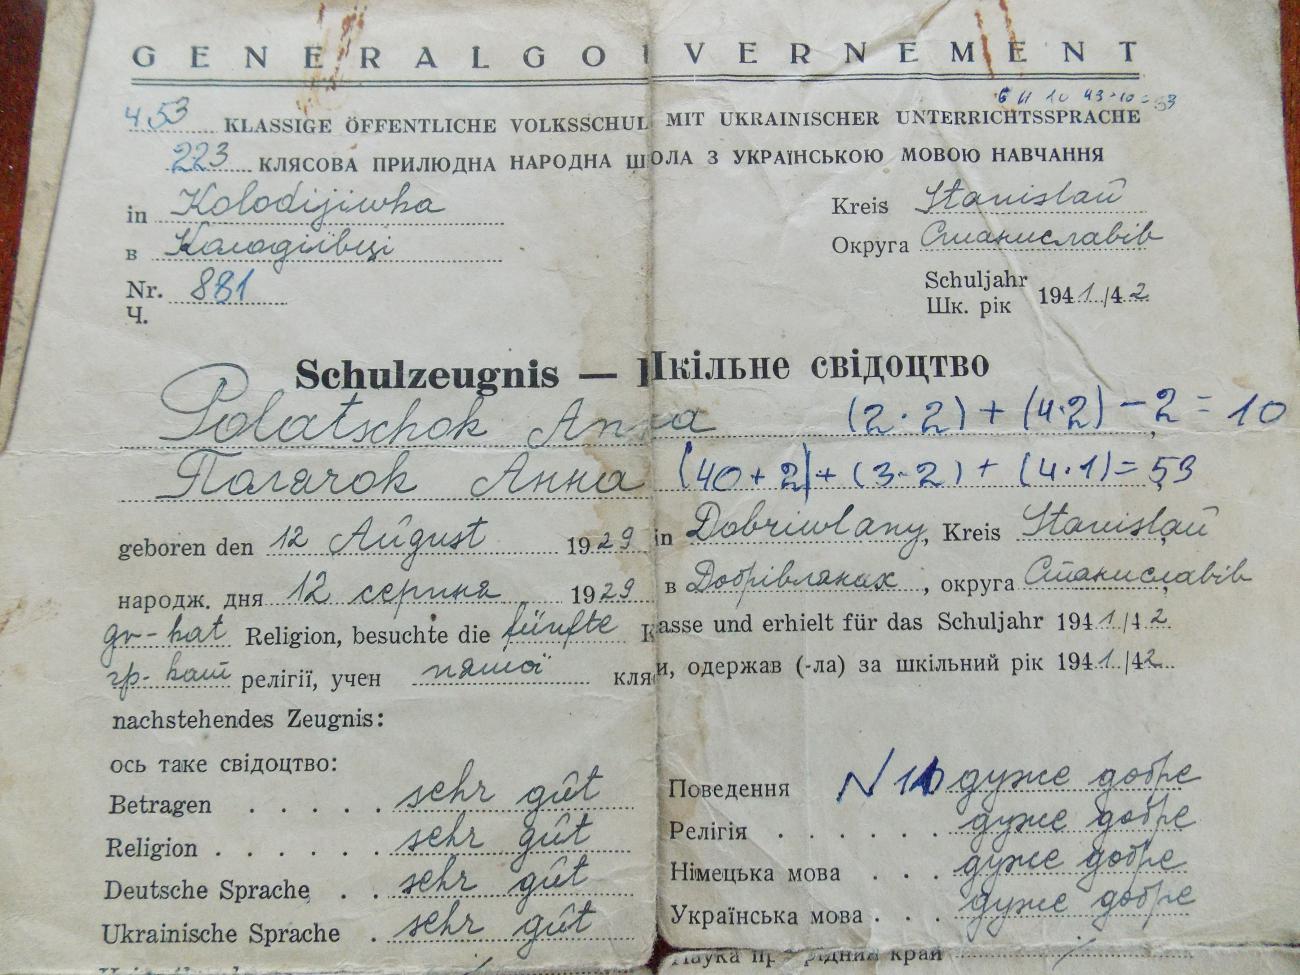 GENERALGOUVERNEMENT
6 11 10 43-10=53
453 KLASSIGE ÖFFENTLICHE VOLKSSCHUL MIT UKRAINISCHER UNTERRICHTSSPRACHE
223 КЛЯСОВА ПРИЛЮДНА НАРОДНА ШКОЛА З УКРАЇНСЬКОЮ МОВОЮ НАВЧАННЯ
in Kolodijiwka Kreis Stanislaŭ
в Колодіївці Округа Станиславів
Nr. 881 Schuljahr 1941/42
Ч. Шк. рік
Schulzeugnis — Шкільне свідоцтво
Polatschok Anna (2·2)+(4·2)-2=10
Полачок Анна (40+2)+(3·2)+(4·1)=53
geboren den 12 Aŭgust 1929 in Dobriwlany, Kreis Stanislaŭ
народж. дня 12 серпня 1929 в Добрівлянах, округа Станиславів
gr-kat Religion, besuchte die fünfte Klasse und erhielt für das Schuljahr 1941/42
гр-кат релігії, учен пятої кляси, одержав (-ла) за шкільний рік 1941/42
nachstehendes Zeugnis:
ось таке свідоцтво:
Betragen . . . . . sehr gŭt Поведення N 11 дуже добре
Religion . . . . . . sehr gŭt Релігія . . . . . . дуже добре
Deutsche Sprache . . sehr gŭt Німецька мова . . . дуже добре
Ukrainische Sprache . sehr gŭt Українська мова . . . дуже добре
край